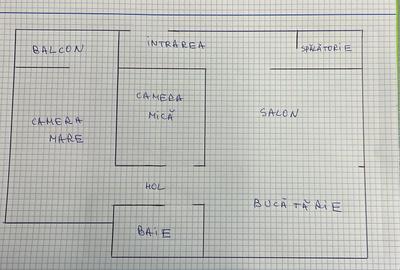 BALCON
INTRAREA
SPĂLĂTORIE
CAMERA
MICĂ
SALON
CAMERA
MARE
HOL
BUCĂTĂRIE
BAIE